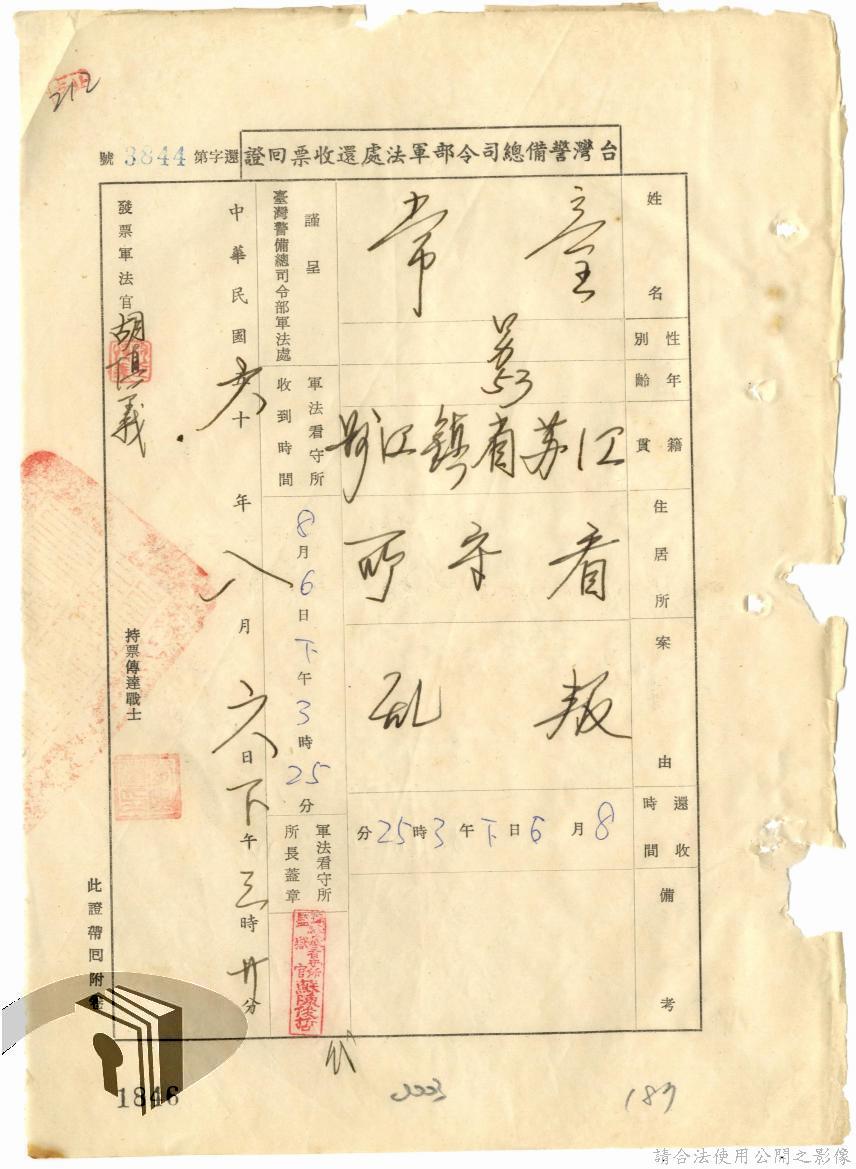 212
台灣警備總司令部軍法處還收票回證
還字第3844號
姓名 童常
性別 男
年齡 53
籍貫 江苏省鎮江縣
住居所 看守所
案由 叛乱
還收時間 8月6日下午3時25分
備考
謹呈
臺灣警備總司令部軍法處
軍法看守所
收到時間
8月6日下午3時25分
軍法看守所
所長蓋章
中華民國六十年八月六日下午三時廿分
發票軍法官 胡義
持票傳達戰士
此證帶回附卷
1846
187
請合法使用公開之影像